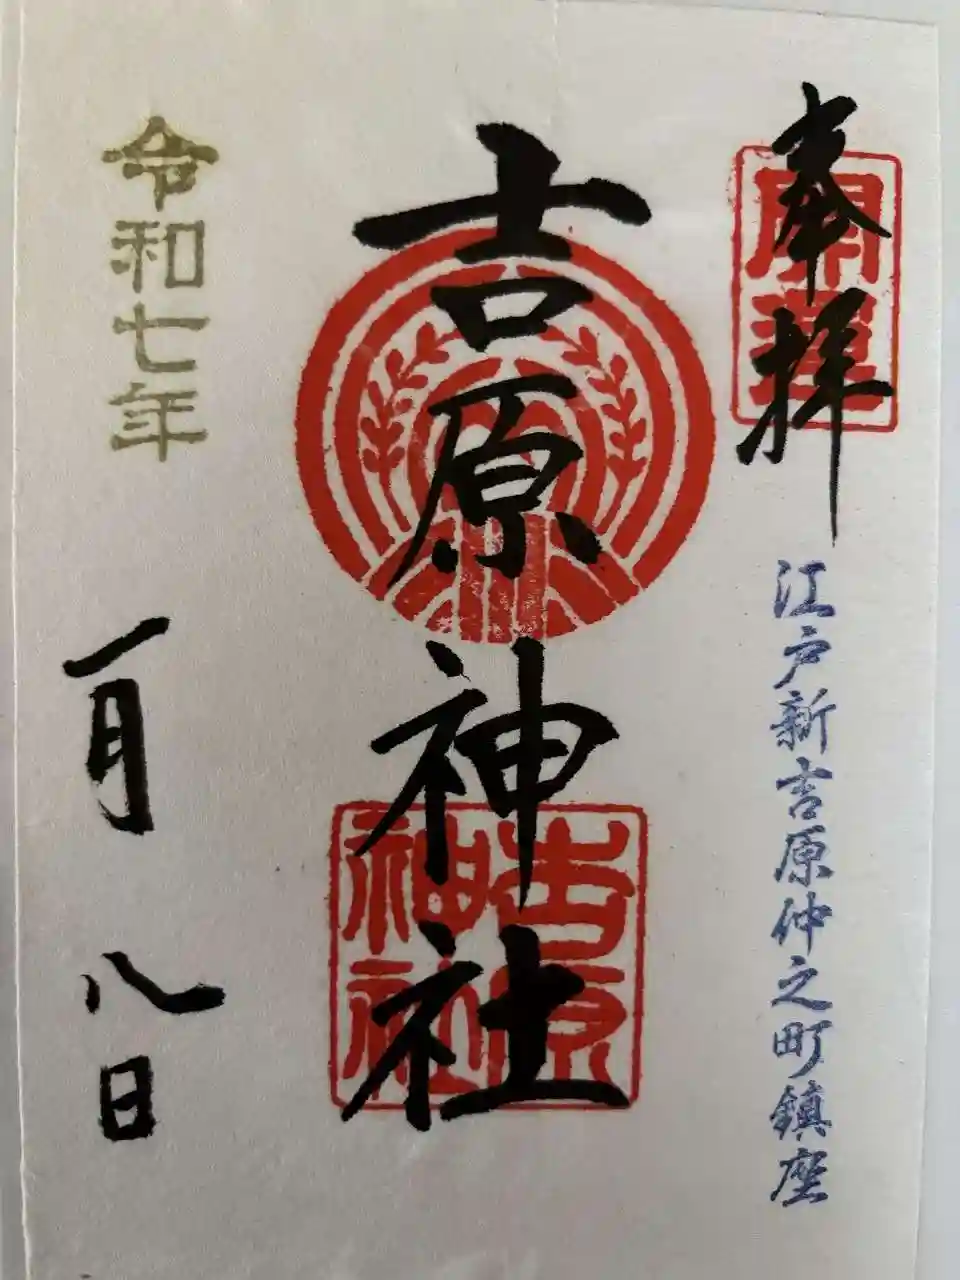 奉拝
江戸新吉原仲之町鎮座
吉原神社
吉原
神社
令和七年
一月八日